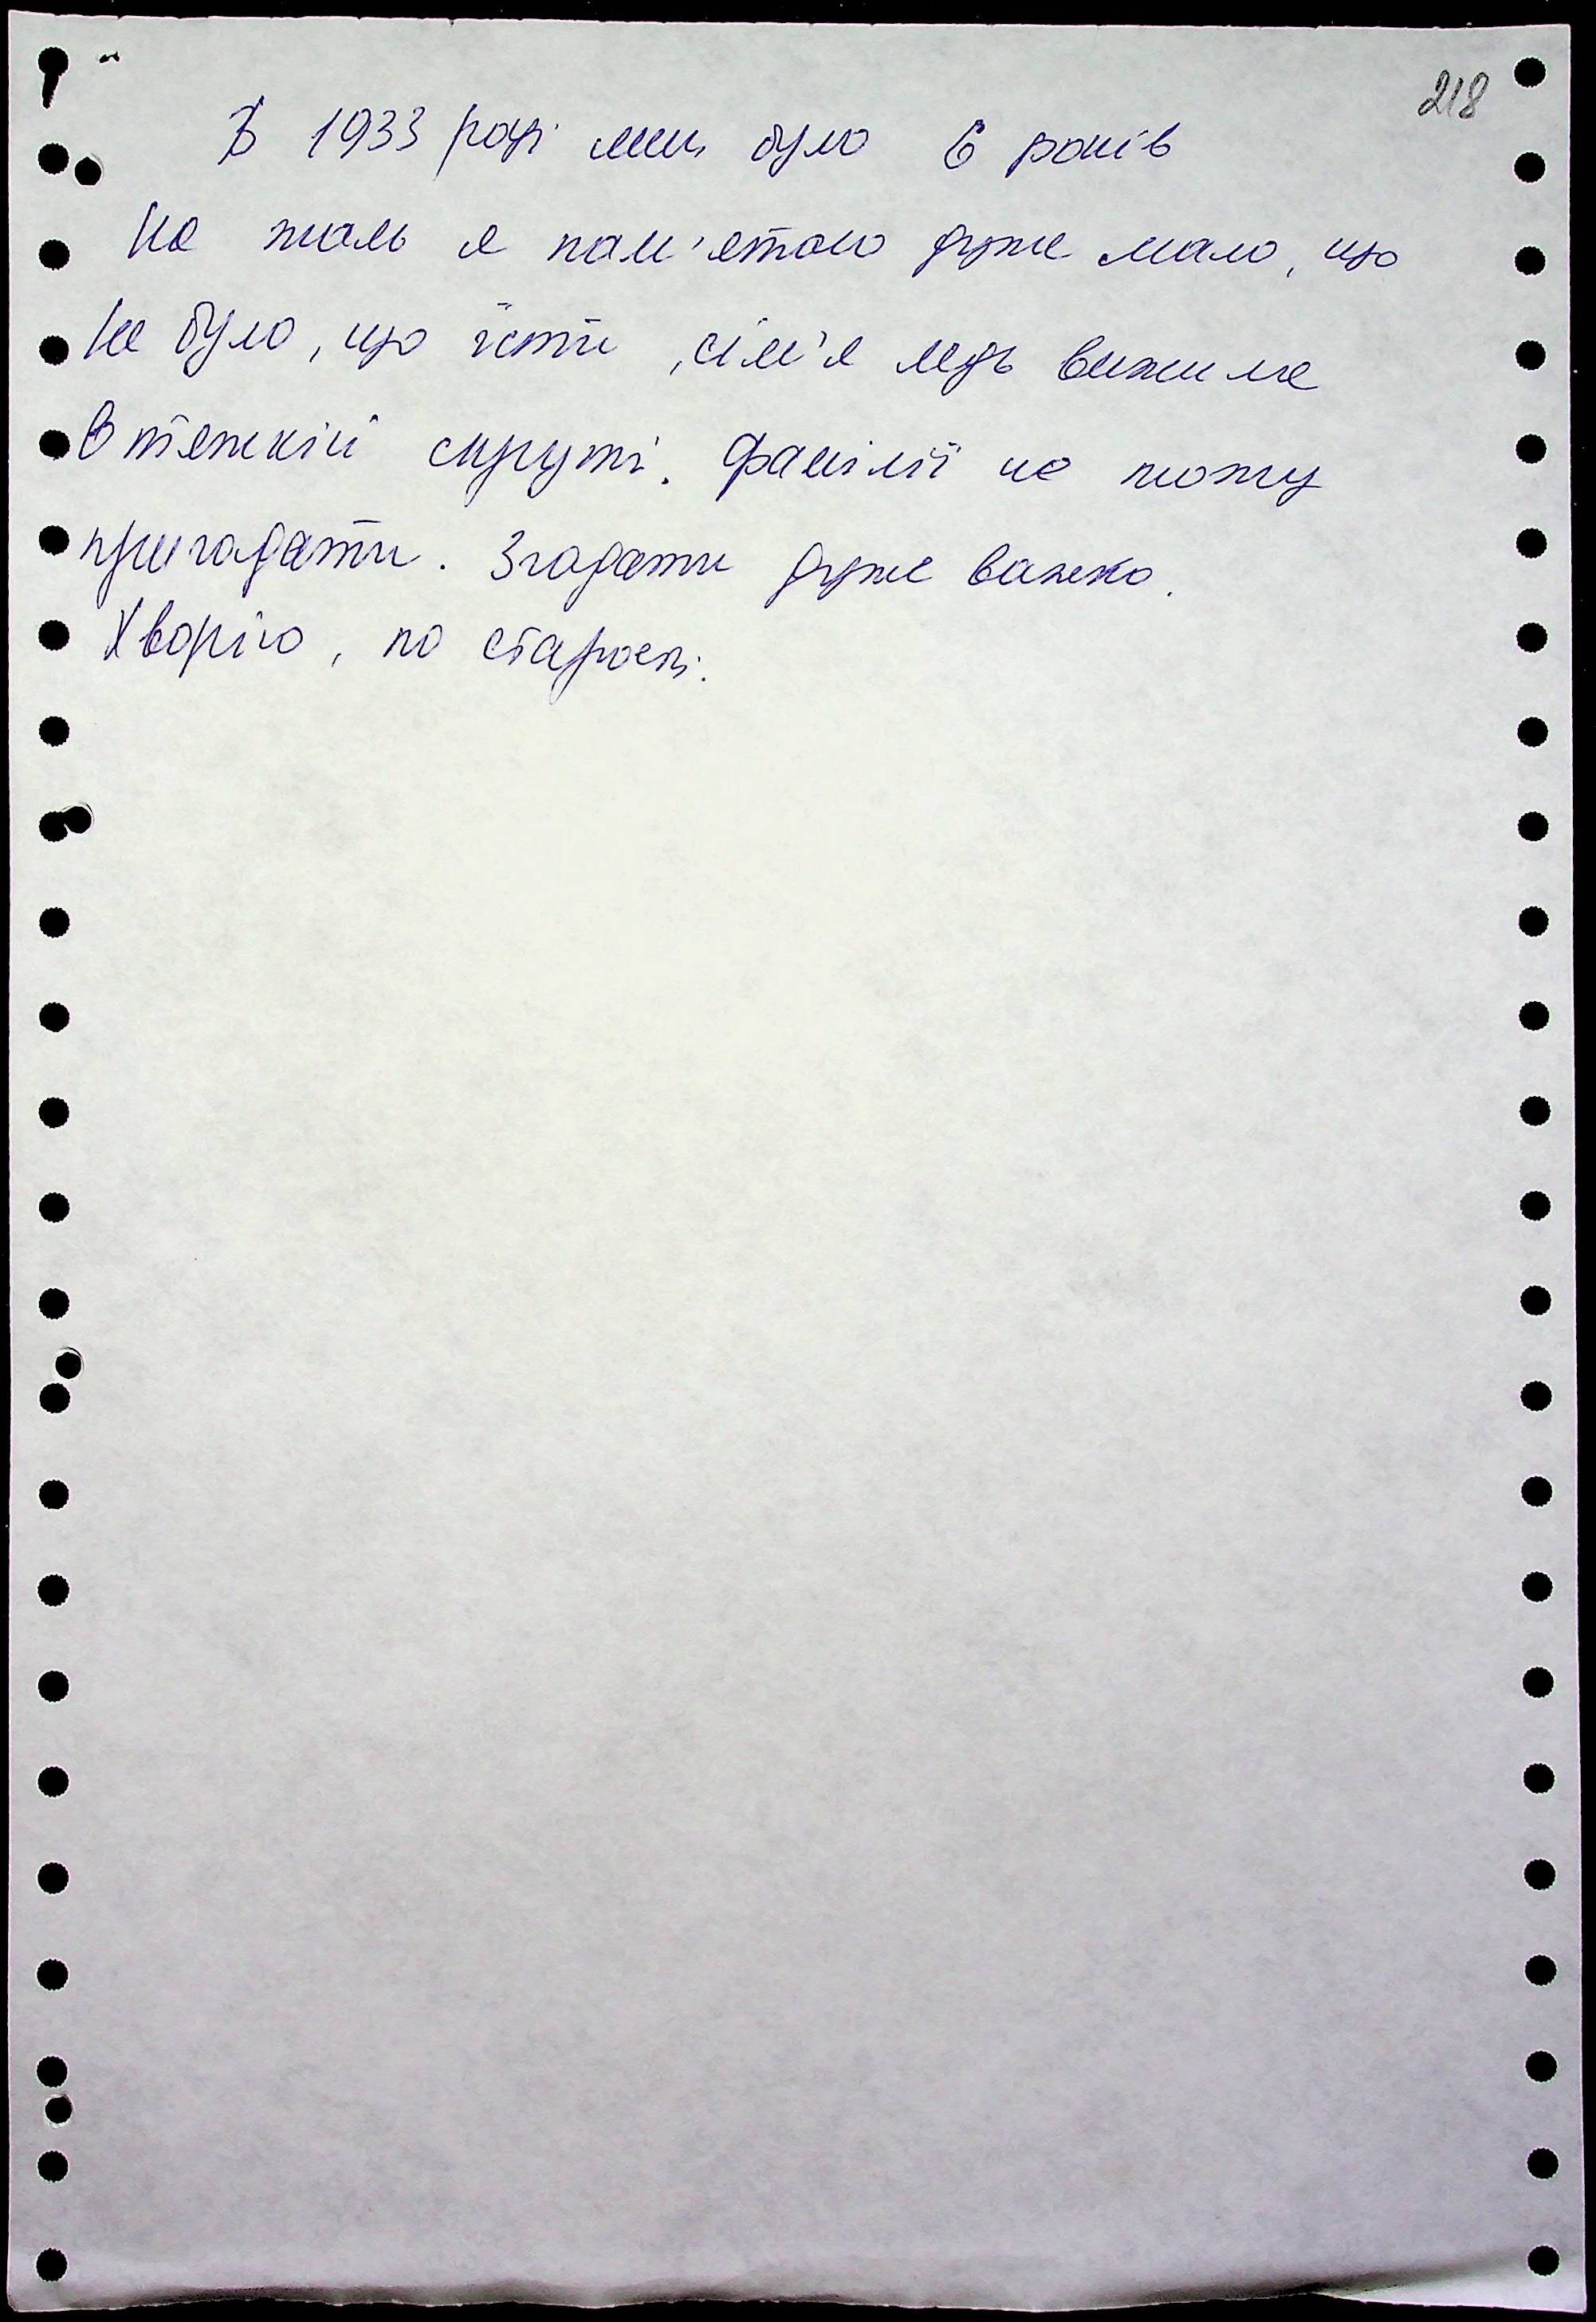 218
В 1933 році мені було 6 років
На жаль я пам'ятаю дуже мало, що
не було, що їсти, сім'я ледь вижила
в тяжкій скруті. Фамілії не можу
пригадати. Згадати дуже важко.
Хворію, по старості.